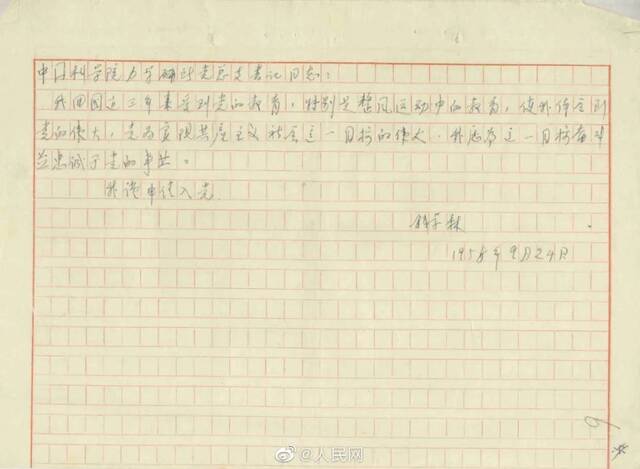 中国科学院力学研究所党总支书记同志：
我回国近三年来受到党的教育，特别是整风运动中的教育，使我体会到
党的伟大，党为实现共产主义社会这一目标的伟大。我愿为这一目标奋斗
并忠诚于党的事业。
我谨申请入党
钱学森
1958年9月24日
9
@人民网